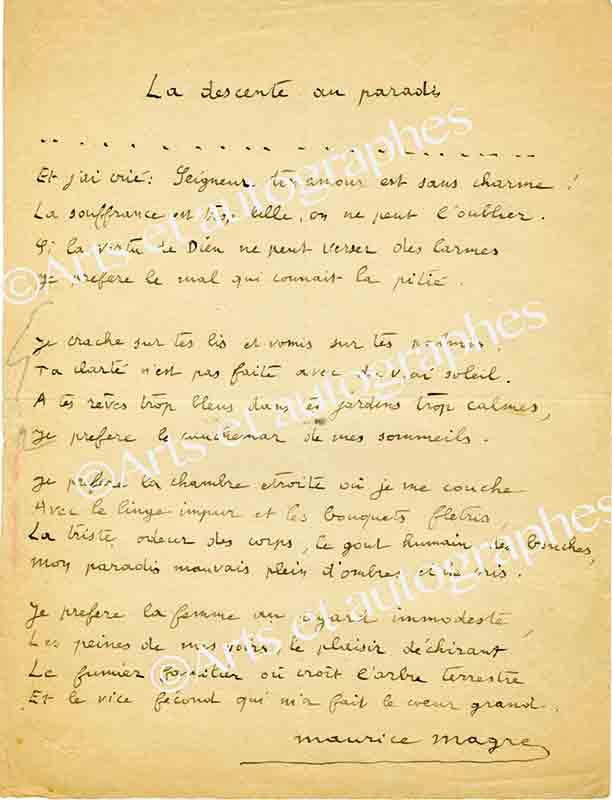 La descente au paradis
Et j'ai crié : Seigneur, ton amour est sans charme !
La souffrance est trop belle, on ne peut l'oublier.
Si la vertu de Dieu ne peut verser des larmes
Je prefere le mal qui connait la pitié.
Je crache sur tes lis et vomis sur tes
Ta clarté n'est pas faite avec du vrai soleil.
A tes rêves trop bleus dans tes jardins trop calmes,
Je prefere le cauchemar de mes sommeils.
Je prefere la chambre etroite où je me couche
Avec le linge impur et les bouquets fletris,
La triste odeur des corps, le gout humain des bouches,
Mon paradis mauvais plein d'ombres et de cris.
Je prefere la femme au regard immodeste,
Les peines de mes soirs, le plaisir déchirant
Le fumier familier où croît l'arbre terrestre
Et le vice fécond qui m'a fait le coeur grand.
maurice magre
©Arts et autographes
©Arts et autographes
©Arts et autographes